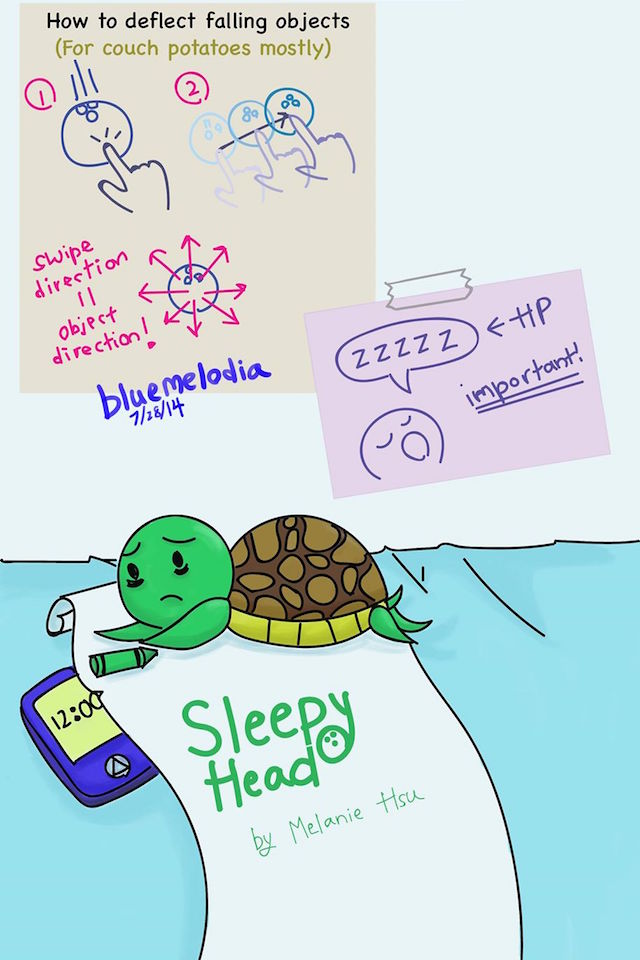 How to deflect falling objects
(For couch potatoes mostly)
1
2
swipe
direction
||
object
direction!
bluemelodia
7/28/14
ZZZZZ
← HP
important!
12:00
Sleepy
Head
by Melanie Hsu